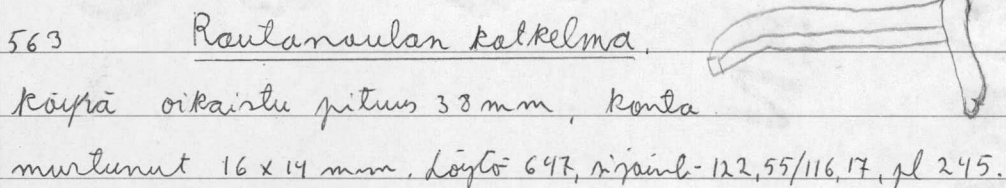 563 Rautanaulan katkelma.
Käyrä oikaistu pituus 38 mm, kanta
murtunut 16 x 14 mm. Löytö 647, sijainti - 122,55/116,17, pl 245.